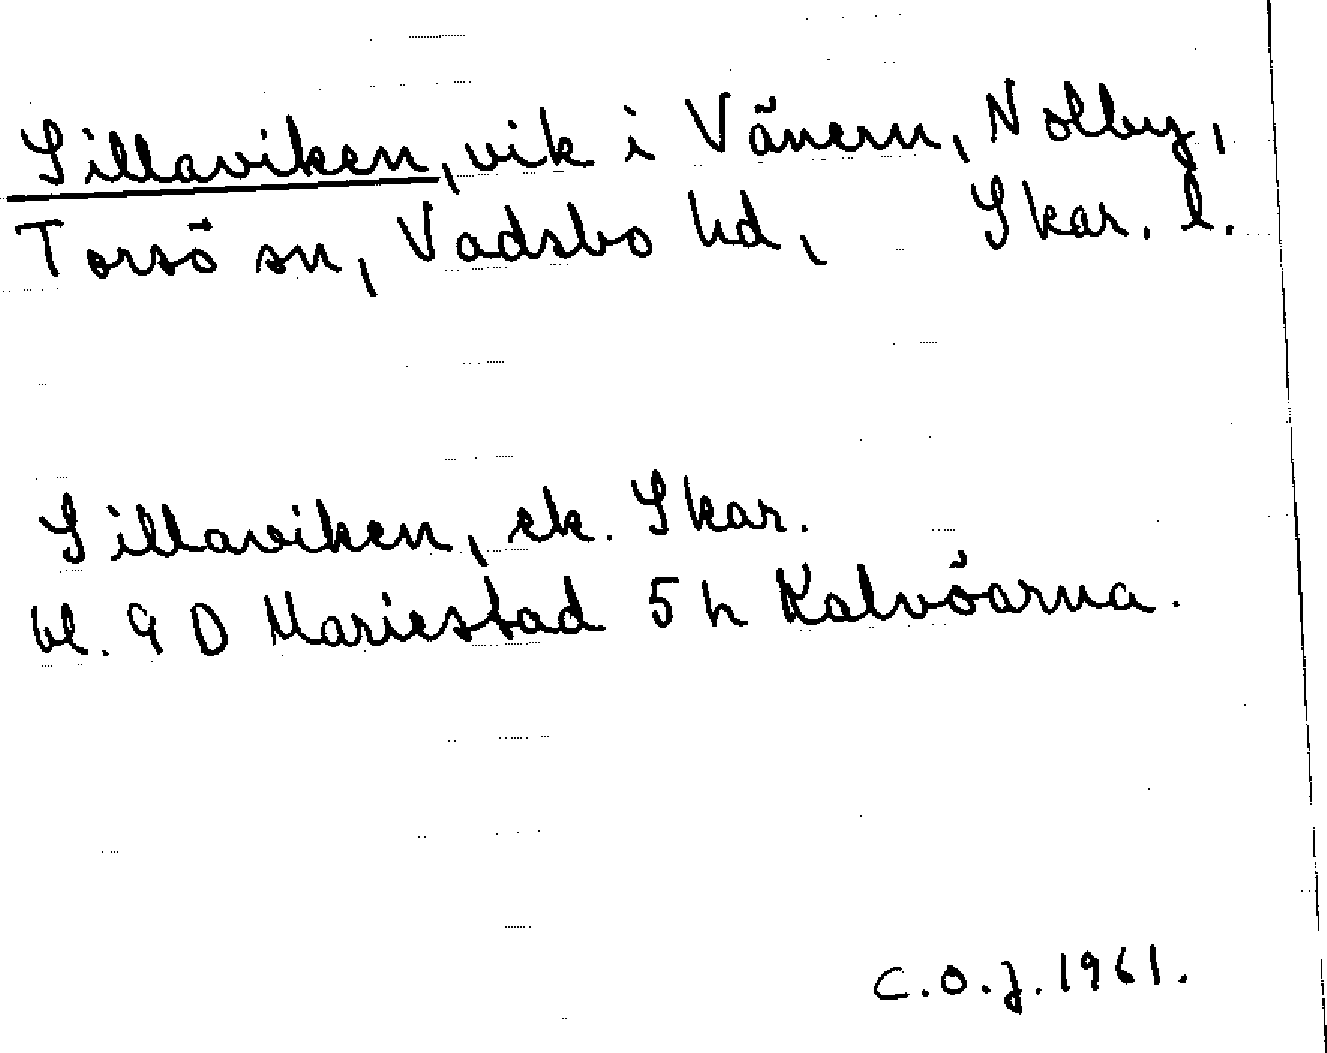 Sillaviken, vik i Vänern, Nolby,
Torsö sn, Vadsbo hd, Skar. l.
Sillaviken, ek. Skar.
bl. 9 D Mariestad 5 h Kalvöarna.
C.O.J. 1961.